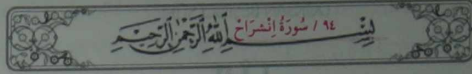 ٩٤ / سُورَةُ اِنْشِرَاحْ
بِسْمِ اللّٰهِ الرَّحْمٰنِ الرَّحِيمِ